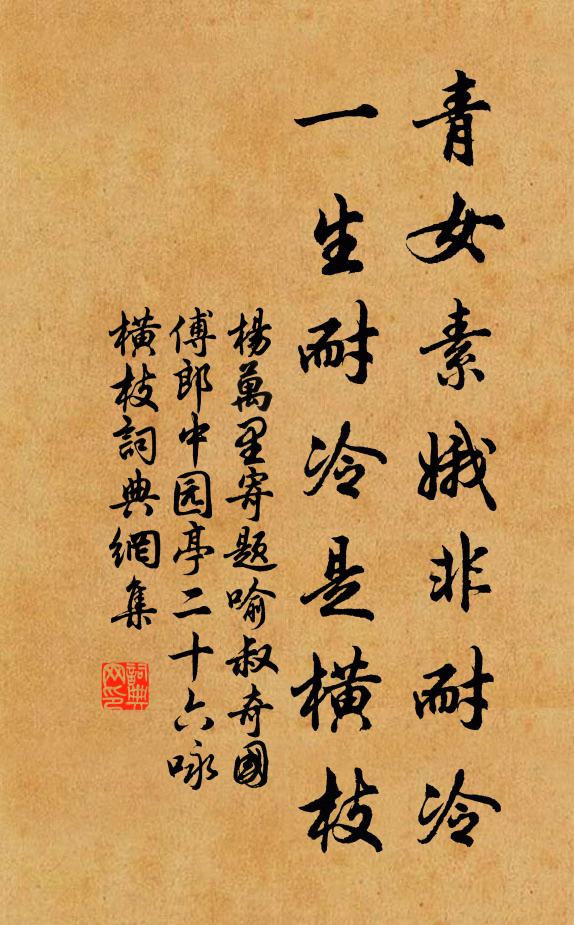 青女素娥非耐冷
一生耐冷是横枝
楊萬里寄题喻叔奇國
傅郎中园亭二十六咏
横枝詞典網集
詞典
网印